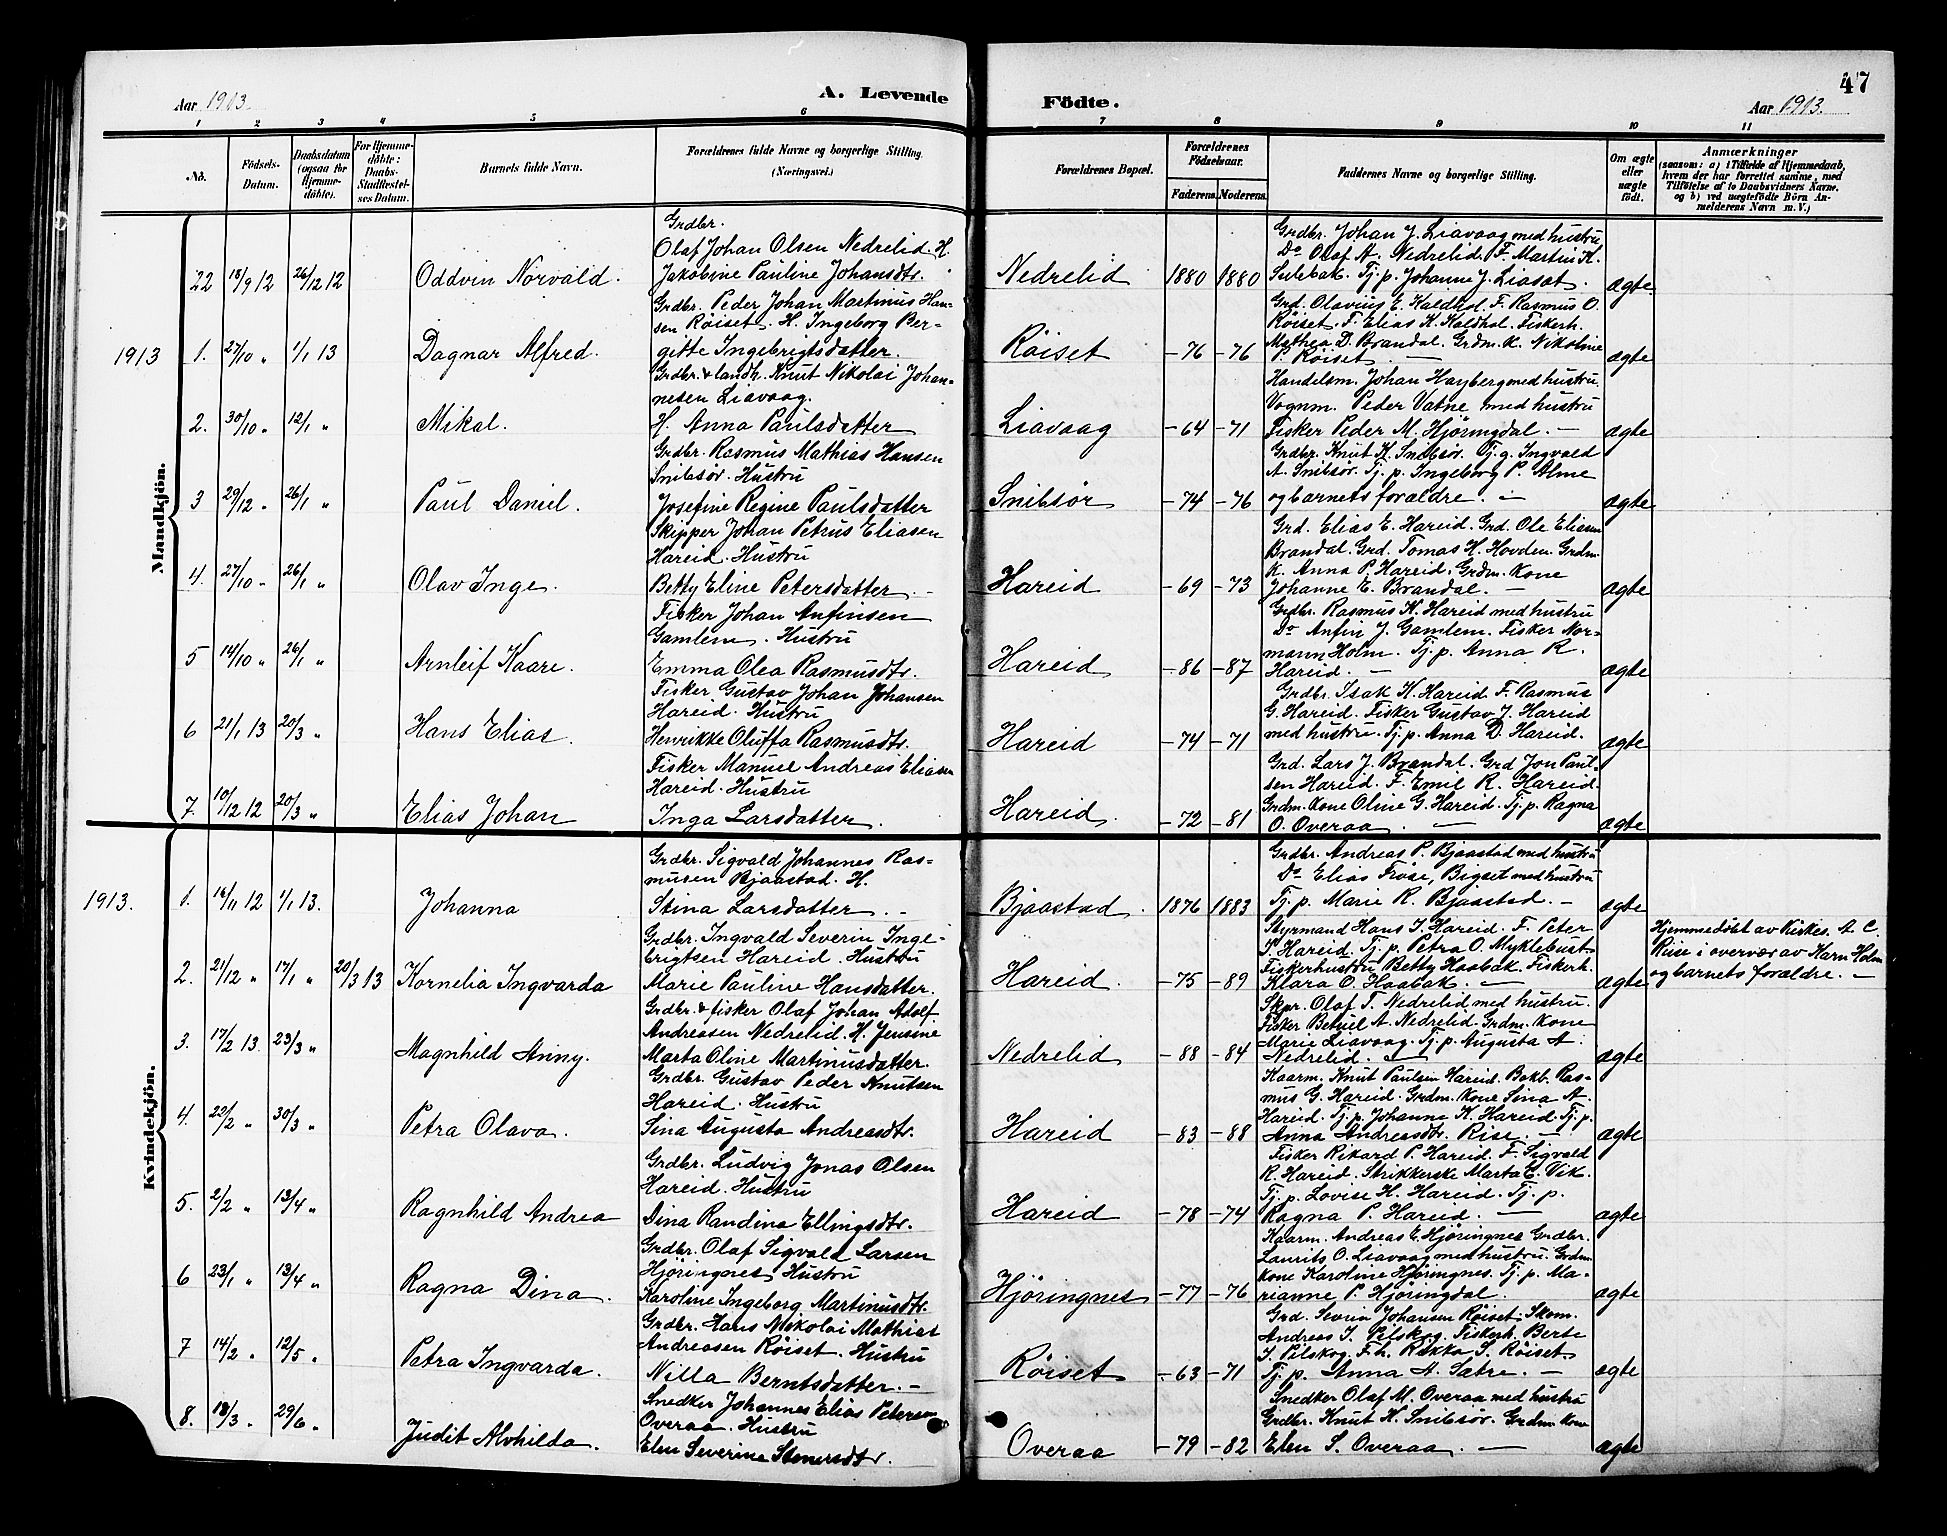 47
Aar 1913.
A. Levende
Födte.
Aar 1913.
1 2 3 4 5 6 7 8 9 10 11
No.
Födsels-Datum.
Daabsdatum (ogsaa for Hjemme-döbte).
For Hjemme-döbte: Daabs-Stadfæstel-ses Datum.
Barnets fulde Navn.
Forældrenes fulde Navne og borgerlige Stilling. (Næringsvei.)
Forældrenes Bopæl.
Forældrenes Födselsaar.
Faderens. Moderens.
Faddernes Navne og borgerlige Stilling.
Om ægte eller uægte födt.
Anmærkninger
(saasom: a) i Tilfælde af Hjemmedaab, hvem der har forrettet samme, med Tilföielse af to Daabsvidners Navne, og b) ved uægtefödte Börn Anmelderens Navn m. V.)
Mandkjön.
22 18/9 12 26/12 12 Oddvin Norvald.
Grdbr.
Olaf Johan Olsen Nedrelid. H.
Jakobine Pauline Johansdtr.
Nedrelid 1880 1880
Grdbr. Johan J. Liavaag med hustru
Do Olaf A. Nedrelid. F. Martin K.
Sulebak. Tj. p. Johanne J. Liaset.
ægte.
1913 1. 27/10 „ 1/1 13 Dagnar Alfred.
Grdbr. Peder Johan Martinus Han-
sen Röiset. H. Ingeborg Ber-
gitte Ingebrigtsdatter.
Röiset - 76 - 76
Grd. Olavius E. Kaldhol. F. Rasmus O.
Röiset. F. Elias K. Kaldhol. Fiskerh.
Mathea D. Brandal. Grdm. K. Nikoline
P. Röiset. —
ægte
2. 30/10 „ 12/1 „ Mikal.
Grdbr. & landh. Knut Nikolai Johan-
nesen Liavaag.
H. Anna Paulsdatter
Liavaag - 64 - 71
Handelsm. Johan Hayberg med hustru.
Vognm. Peder Vatne med hustru
Fisker Peder M. Hjöringdal. —
ægte
3 29/12 „ 26/1 „ Paul Daniel.
Grdbr. Rasmus Mathias Hansen
Snibsör. Hustru
Josefine Regine Paulsdatter
Snibsör - 74 - 76
Grdbr. Knut H. Snibsör. Tj. g. Ingvald
A. Snibsör. Tj. p. Ingeborg P. Alme
og barnets forældre. —
ægte
4. 27/10 „ 26/1 „ Olav Inge.
Skipper Johan Petrus Eliasen
Hareid. Hustru
Betty Eline Petersdatter. —
Hareid - 69 - 73
Grd. Elias E. Hareid. Grd. Ole Eliasen
Brandal. Grd. Tomas H. Hovden. Grdm.
K. Anna P. Hareid. Grdm. kone
Johanne E. Brandal. —
ægte
5 14/10 „ 26/1 „ Arnleif Kaare.
Fisker Johan Anfinsen
Gamlem. Hustru
Emma Olea Rasmusdtr.
Hareid - 86 - 87
Grdbr. Rasmus K. Hareid med hustru
Do Anfin J. Gamlem. Fisker Nor-
mann Holm. Tj. p. Anna R.
Hareid. —
ægte
6 21/1 13 20/3 „ Hans Elias.
Fisker Gustav Johan Johansen
Hareid. Hustru
Henrikke Oluffa Rasmusdtr.
Hareid - 74 - 71
Grdbr. Isak K. Hareid. F. Rasmus
G. Hareid. Fisker Gustav J. Hareid
med hustru. Tj. p. Anna D. Hareid.
ægte
7. 10/12 12 20/3 „ Elias Johan
Fisker Manuel Andreas Eliasen
Hareid. Hustru
Inga Larsdatter.
Hareid. - 72 - 81
Grd. Lars J. Brandal. Grd Jon Paul-
sen Hareid. F. Emil R. Hareid.
Grdm. kone Oline G. Hareid. Tj. p. Ragna
O. Overaa. —
ægte
Kvindekjön.
1913. 1. 16/11 12 1/1 13. Johanna
Grdbr. Sigvald Johannes Ras-
musen Bjaastad. H.
Stina Larsdatter. —
Bjaastad. 1876 1883
Grdbr. Andreas P. Bjaastad med hustru
Do Elias Fröse, Bigset med hustru
Tj. p. Marie R. Bjaastad. —
ægte
2. 21/12 „ 17/1 „ 20/3 13 Kornelia Ingvarda
Grdbr. Ingvald Severin Inge-
brigtsen Hareid. Hustru
Marie Pauline Hansdatter.
Hareid. - 75 - 89
Styrmand Hans I. Hareid. F. Peter
I. Hareid. Tj. p. Petra O. Myklebust
Fiskerhustru Betty Haabak. Fiskerh.
Klara O. Haabak. —
ægte
Hjemmedöbt av Kirkes. A. C.
Riise i overvær av Karn Holm
og barnets forældre. —
3. 17/2 13. 23/3 „ Magnhild Anny.
Grdbr. & fisker Olaf Johan Adolf
Andreasen Nedrelid. H. Jensine
Marta Oline Martinusdatter.
Nedrelid - 88 - 84
Skpr. Olaf T. Nedrelid med hustru.
Fisker Betuel A. Nedrelid. Grdm. kone
Marie Liavaag. Tj. p. Augusta A.
Nedrelid. —
ægte
4. 22/2 „ 30/3 „ Petra Olava.
Grdbr. Gustav Peder Knutsen
Hareid. Hustru
Sina Augusta Andreasdtr.
Hareid - 83 - 88
Kaarm. Knut Paulsen Hareid. Bakb. Ras-
mus G. Hareid. Grdm. kone Sina A.
Hareid. Tj. p. Johanne K. Hareid. Tj. p.
Anna Andreasdtr. Rise. —
ægte
5. 2/2 „ 13/4 „ Ragnhild Andrea
Grdbr. Ludvig Jonas Olsen
Hareid. Hustru
Dina Randina Ellingsdtr.
Hareid - 78 - 74
Fisker Rikard P. Hareid. F. Sigvald
R. Hareid. Strikkerske Marta E. Vik.
Tj. p. Lovise H. Hareid. Tj. p.
Ragna P. Hareid. —
ægte
6 23/1 „ 13/4 „ Ragna Dina.
Grdbr. Olaf Sigvald Larsen
Hjöringnes Hustru
Karoline Ingeborg Martinusdtr.
Hjöringnes - 77 - 76
Kaarm. Andreas E. Hjöringnes Grdbr.
Laurits O. Liavaag med hustru. Grdm
kone Karoline Hjöringnes. Tj. p. Ma-
rianne P. Hjöringdal.
ægte
7 14/2 „ 12/5 „ Petra Ingvarda.
Grdbr. Hans Nikolai Mathias
Andreasen Röiset. Hustru
Nilla Berntsdatter. —
Röiset - 63 - 71
Grd. Severin Johansen Röiset. Skom.
Andreas I. Pilskog. Fiskerh. Berte
I. Pilskog. F. h. Rakka S. Röiset.
Tj. p. Anna A. Sætre. —
ægte
8. 18/3 „ 29/6 „ Judit Alvhilda.
Snedker Johannes Elias Petersen
Overaa. Hustru
Elen Severine Stenersdtr.
Overaa - 79 - 82
Snedker Olaf M. Overaa med hustru
Grdbr. Knut H. Snibsör. Grdm. kone
Elen S. Overaa. —
ægte